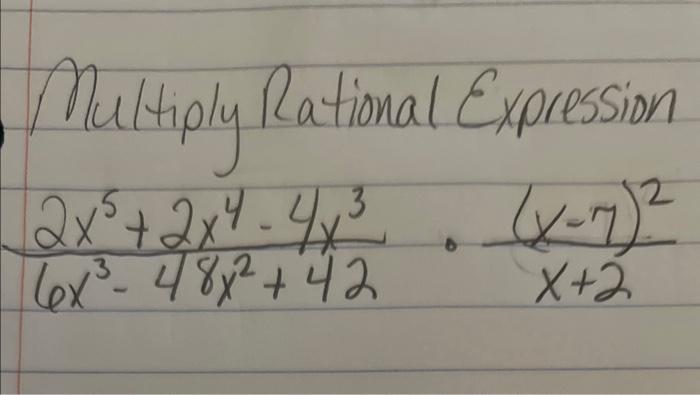 Multiply Rational Expression
2x⁵ + 2x⁴ - 4x³ / 6x³ - 48x² + 42 · (x-7)² / x+2